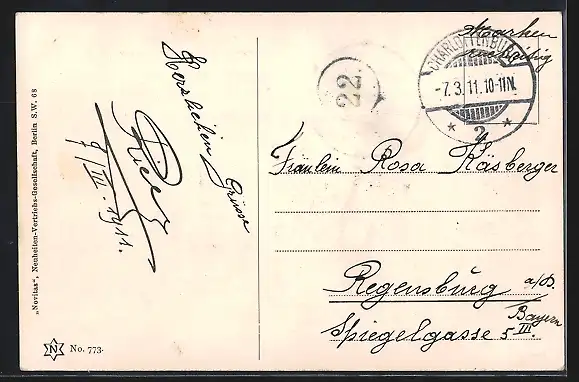 „Novitas“, Neuheiten-Vertriebs-Gesellschaft, Berlin S.W. 68
Herzlichen Grüsse
7/III. 1911.
N No. 773.
22.
Marken
CHARLOTTENBURG
-7.3.11.10-11N.
* 2 *
Fräulein Rosa Käsberger
Regensburg a/D.
Bayern
Spiegelgasse 5 III.